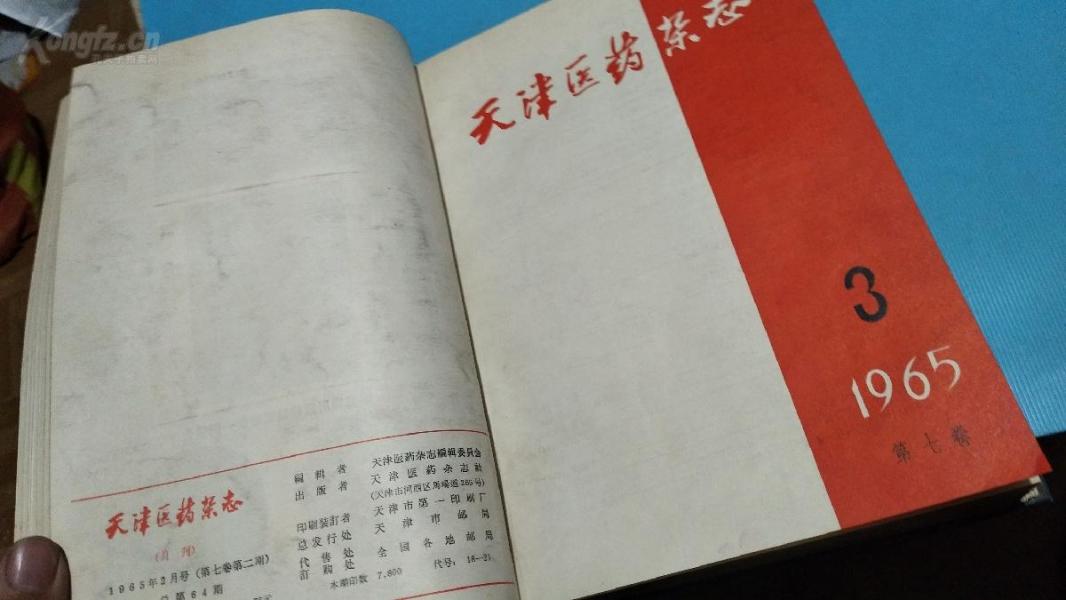 Kongfz.cn
天津医药杂志
(月刊)
1965年2月号(第七卷第二期)
总第64期
編輯者 天津医药杂志編輯委員会
出版者 天津医药杂志社
(天津市河西区馬場道265号)
印刷装訂者 天津市第一印刷厂
总发行处 天津市邮局
代售处
訂购处 全国各地邮局
本期印数 7,800 代号:18—21
天津医药杂志
3
1965
第七卷